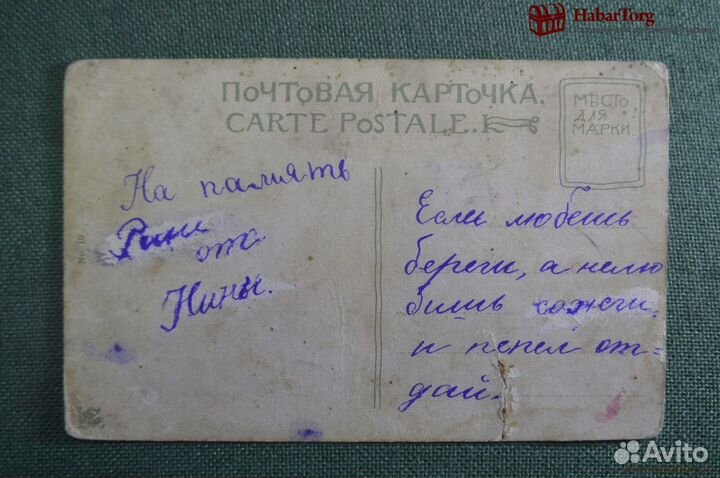 HabarTorg
ПОЧТОВАЯ КАРТОЧКА.
CARTE POSTALE.
МѢСТО
ДЛЯ
МАРКИ
На память
Рине
от
Нины.
No 10
Если любешь
береги, а нелю
бишь сожги
и пепел от=
дай.
Avito